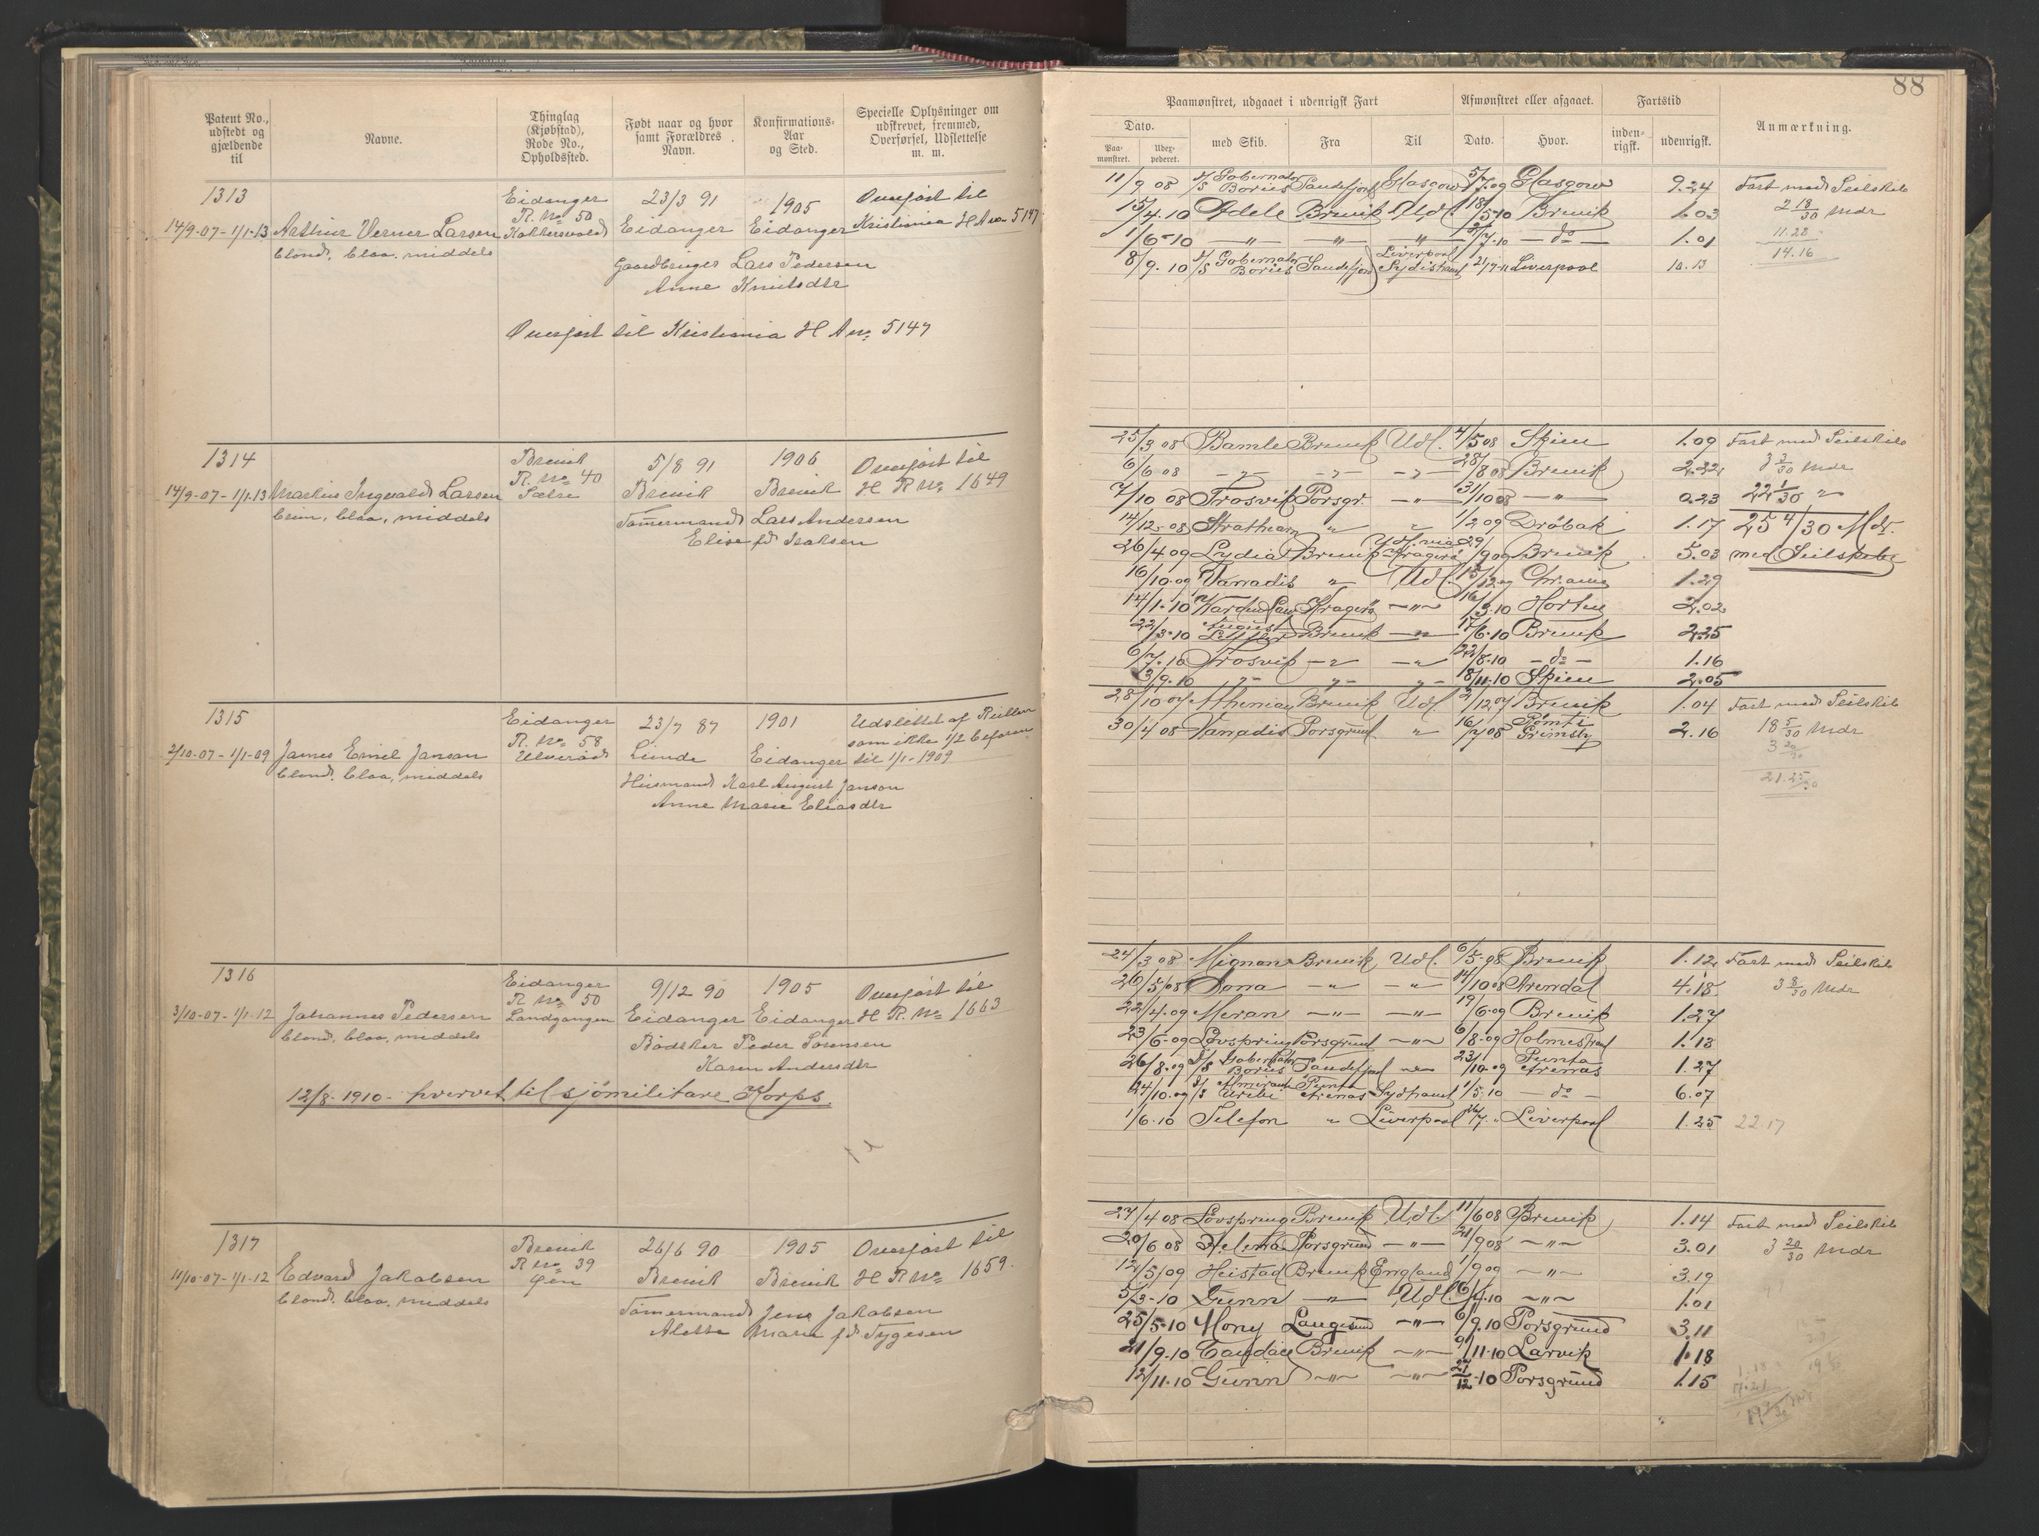 88
Patent No., udstedt og gjældende til
Navne.
Thinglag (Kjøbstad), Rode No., Opholdssted.
Født naar og hvor samt Forældres Navn.
Konfirmations-Aar og Sted.
Specielle Oplysninger om udskrevet, fremmed, Overførsel, Udslettelse m. m.
1313 Eidanger 23/3 91 1905 Overført til
R. No 50
14/9-07-1/1-13 Arthur Verner Larsen Kokkersvold Eidanger Eidanger Kristiania H A no 5147
blond, blaa, middels
Gaardbruger Lars Pedersen
Anne Knutsdtr
Overført til Kristiania H A no 5147
1314 Brevik 5/8 91 1906 Overført til
R. No 40
14/9-07-1/1-13 Martin Ingvald Larsen Brevik Brevik H R No 1649
brun, blaa, middels
Tømmermand Lars Andersen
Elise fd Isaksen
1315 Eidanger 23/7 87 1901 Udslettet af Rullen
R. No 58 som ikke 1/2 befaren
2/10-07-1/1-09 James Emil Janson Ulverød Lunde Eidanger til 1/1-1909
blond, blaa, middels
Husmand Karl August Janson
Anne Marie Eliasdtr
1316 Eidanger 9/12 90 1905 Overført til
R No 50
3/10-07-1/1-12 Johannes Pedersen Landgangen Eidanger Eidanger H R. No 1663
blond, blaa, middels
Bødker Peder Sørensen
Karen Andersdtr
12/8-1910- hvervet til sjømilitære Korps.
1317 Brevik 26/6 90 1905 Overført til
R No 39
11/10-07-1/1-12 Edvard Jakobsen Øen Brevik Brevik H R No 1659.
blond, blaa, middels
Tømmermand Jens Jakobsen
Alette Marie fd Tygesen
Paamønstret, udgaaet i udenrigsk Fart
Afmønstret eller afgaaet.
Fartstid
Anmærkning.
Dato.
Paamønstret. Udexpederet. med Skib. Fra Til Dato. Hvor. indenrigsk. udenrigsk.
11/9 08 D/S Gobernator Bories Sandefjord Glasgow 5/7 09 Glasgow 9.24 Fart med Seilskib
15/4.10 Adele Brevik Udl. 18/5-10 Brevik 1.03 2 18/30 Mdr
1/6-10 -"- -"- " 2/7.10 - do - 1.01 11.28
14.16
8/9.10 D/S Gobernator Bories Sandefjord Liverpool Sydishavet 21/7-11 Liverpool 10.13
25/3 08 Bamle Brevik Udl. 4/5 08 Skien 1.09 Fart med Seilskib
6/6 08 -"- -"- -"- 28/8 08 Brevik 2.22 3 3/30 Mdr
7/10 08 Frosvik Porsgr. -"- 31/10 08 -"- 0.23 22 1/30 "
14/12-08 Strathearn " " 1/2 09 Drøbak 1.17 25 4/30 Mdr.
26/4 09 Lydia Brevik Udl. via Kragerø 29/9 09 Brevik 5.03 med Seilskibe
16/10-09 Vanadis " Udl. 15/12.09 Chr.ania 1.29
14/1-10 Kragerø -"- 16/3.10 Horten 2.02
22/3-10 August Leffler Brevik -"- 17/6-10 Brevik 2.25
6/7.10 Frosvik -"- -"- 22/8.10 - do - 1.16
3/9.10 "- "- "- 8/11-10 Skien 2.05
28/10 07 Athenian Brevik Udl. 2/12 07 Brevik 1.04 Fart med Seilskib
30/4 08 Vanadis Porsgrund " 16/7 08 Grimsby 2.16 18 5/30 Mdr
3 20/30
21.25/30
24/3 08 Mignon Brevik Udl. 6/5-08 Brevik 1.12 Fart med Seilskib
26/5 08 Dona " " 14/10 08 Arendal 4.18 3 8/30 Mdr
22/4.09 Meran -"- -"- 19/6-09 Brevik 1.27
23/6-09 Lovspring Porsgrund -"- 6/8-09 Holmestrand 1.13
26/8.09 D/S Gobernator Bories Sandefjord -"- 23/10.09 Punta Arenas 1.27
24/10.09 D/S Almirante Uribe Punta Arenas Sydhavet 1/5.10 - do - 6.07
1/6.10 Telefon " Liverpool 26/7 " Liverpool 1.25 22.17
27/4 08 Lovspring Brevik Udl. 11/6 08 Brevik 1.14 Fart med Seilskib
20/6 08 Helena Porsgrund -"- 21/9 08 -"- 3.01 3 20/30 Mdr
12/5/09 Heistad Brevik England 1/9 09 -"- 3.19
5/3-10 Gunn -"- Udl. 6/4.10 -"- 1.01
25/5-10 Mony Langesund -"- 6/9.10 Porsgrund 3.11
21/9.10 Brevik -"- 9/11-10 Larvik 1.18
12/11-10 Gunn -"- -"- 27/12-10 Porsgrund 1.15